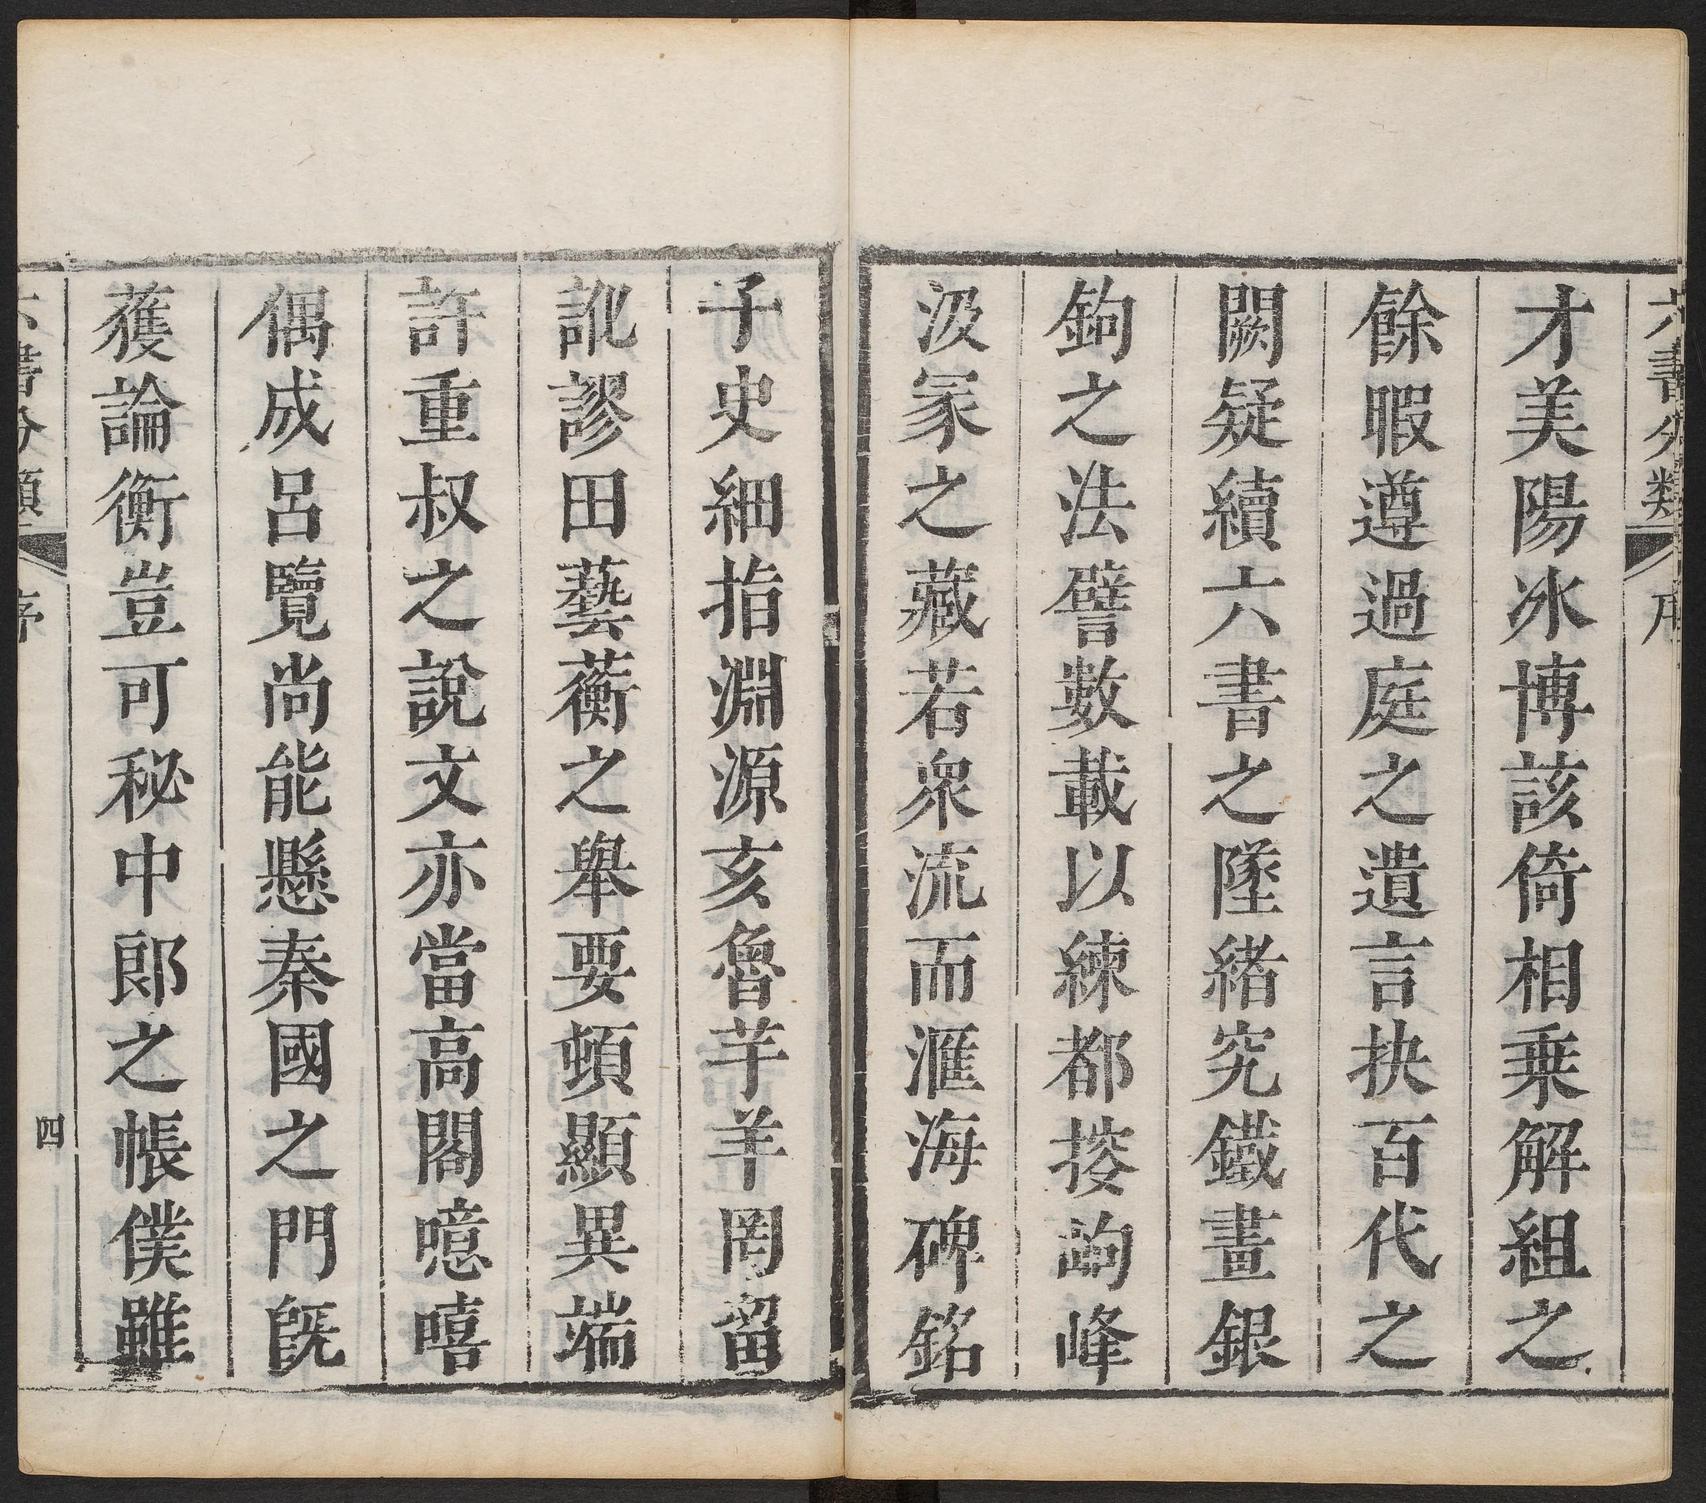 六書分類
序
才美陽冰博該倚相乗解組之
餘暇遵過庭之遺言抉百代之
闕疑續六書之墜緒究鐵畫銀
鉤之法譬數載以練都挍岣峰
汲冢之藏若衆流而滙海碑銘
子史細指淵源亥魯芋羊罔留
訛謬田藝蘅之舉要頓顯異端
許重叔之說文亦當高閣噫嘻
偶成呂覽尚能懸秦國之門旣
獲論衡豈可秘中郎之帳僕雖
六書分類
序
四